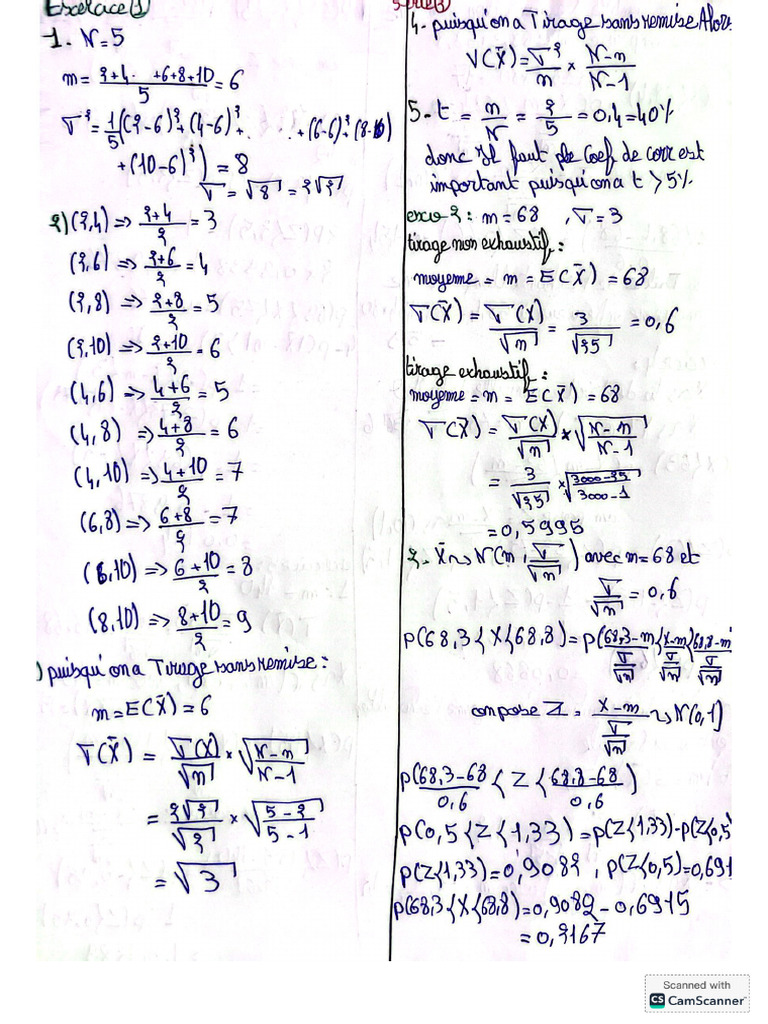 Exercice 1
1. N=5
m= (2+4+6+8+10)/5 = 6
σ² = 1/5 ((2-6)²+(4-6)²+ . . +(6-6)²+(8-6)
+(10-6)²) = 8
σ = √8 = 2√2
2) (2,4) => (2+4)/2 = 3
(2,6) => (2+6)/2 = 4
(2,8) => (2+8)/2 = 5
(2,10) => (2+10)/2 = 6
(4,6) => (4+6)/2 = 5
(4,8) => (4+8)/2 = 6
(4,10) => (4+10)/2 = 7
(6,8) => (6+8)/2 = 7
(6,10) => (6+10)/2 = 8
(8,10) => (8+10)/2 = 9
) puisqu'on a Tirage sans remise :
m = E(X̄) = 6
σ(X̄) = σ(X)/√n × √((N-n)/(N-1))
= 2√2/√2 × √((5-2)/(5-1))
= √3
4. puisqu'on a Tirage sans remise Alors
V(X̄) = σ²/n × (N-n)/(N-1)
5- t = n/N = 2/5 = 0,4 = 40%
donc il faut Coef de corr est
important puisqu'on a t > 5%
exo 2 : m = 68 , σ = 3
tirage non exhaustif :
moyenne = m = E(X̄) = 68
σ(X̄) = σ(X)/√n = 3/√25 = 0,6
tirage exhaustif :
moyenne = m = E(X̄) = 68
σ(X̄) = σ(X)/√n × √((N-n)/(N-1))
= 3/√25 × √((3000-25)/(3000-1))
= 0,5995
2- X̄ ~> N(m, σ/√n) avec m = 68 et
σ/√n = 0,6
P(68,3 < X < 68,8) = P((68,3-m)/(σ/√n) < (X-m)/(σ/√n) < (68,8-m)/(σ/√n)
on pose Z = (X-m)/(σ/√n) ~> N(0,1)
P((68,3-68)/0,6 < Z < (68,8-68)/0,6)
P(0,5 < Z < 1,33) = P(Z<1,33) - P(Z<0,5
P(Z<1,33) = 0,9082 , P(Z<0,5) = 0,691
P(68,3 < X < 68,8) = 0,9082 - 0,6915
= 0,2167
Scanned with
CS CamScanner